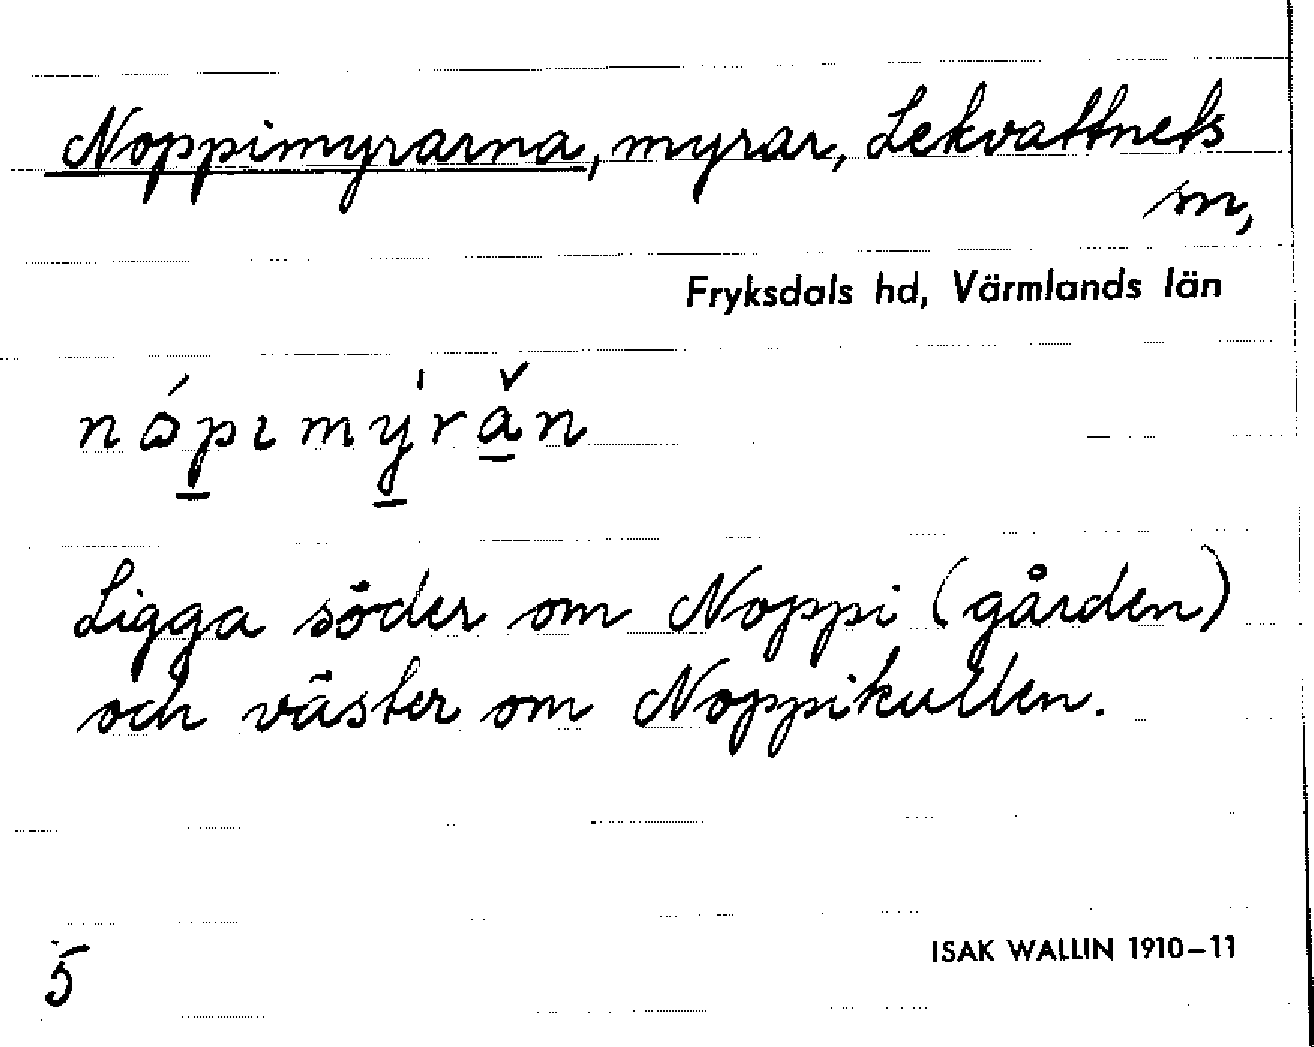 Noppimyrarna, myrar, Lekvattnets
sn,
Fryksdals hd, Värmlands län
Ligga söder om Noppi (gården)
och väster om Noppikullen.
5
ISAK WALLIN 1910-11